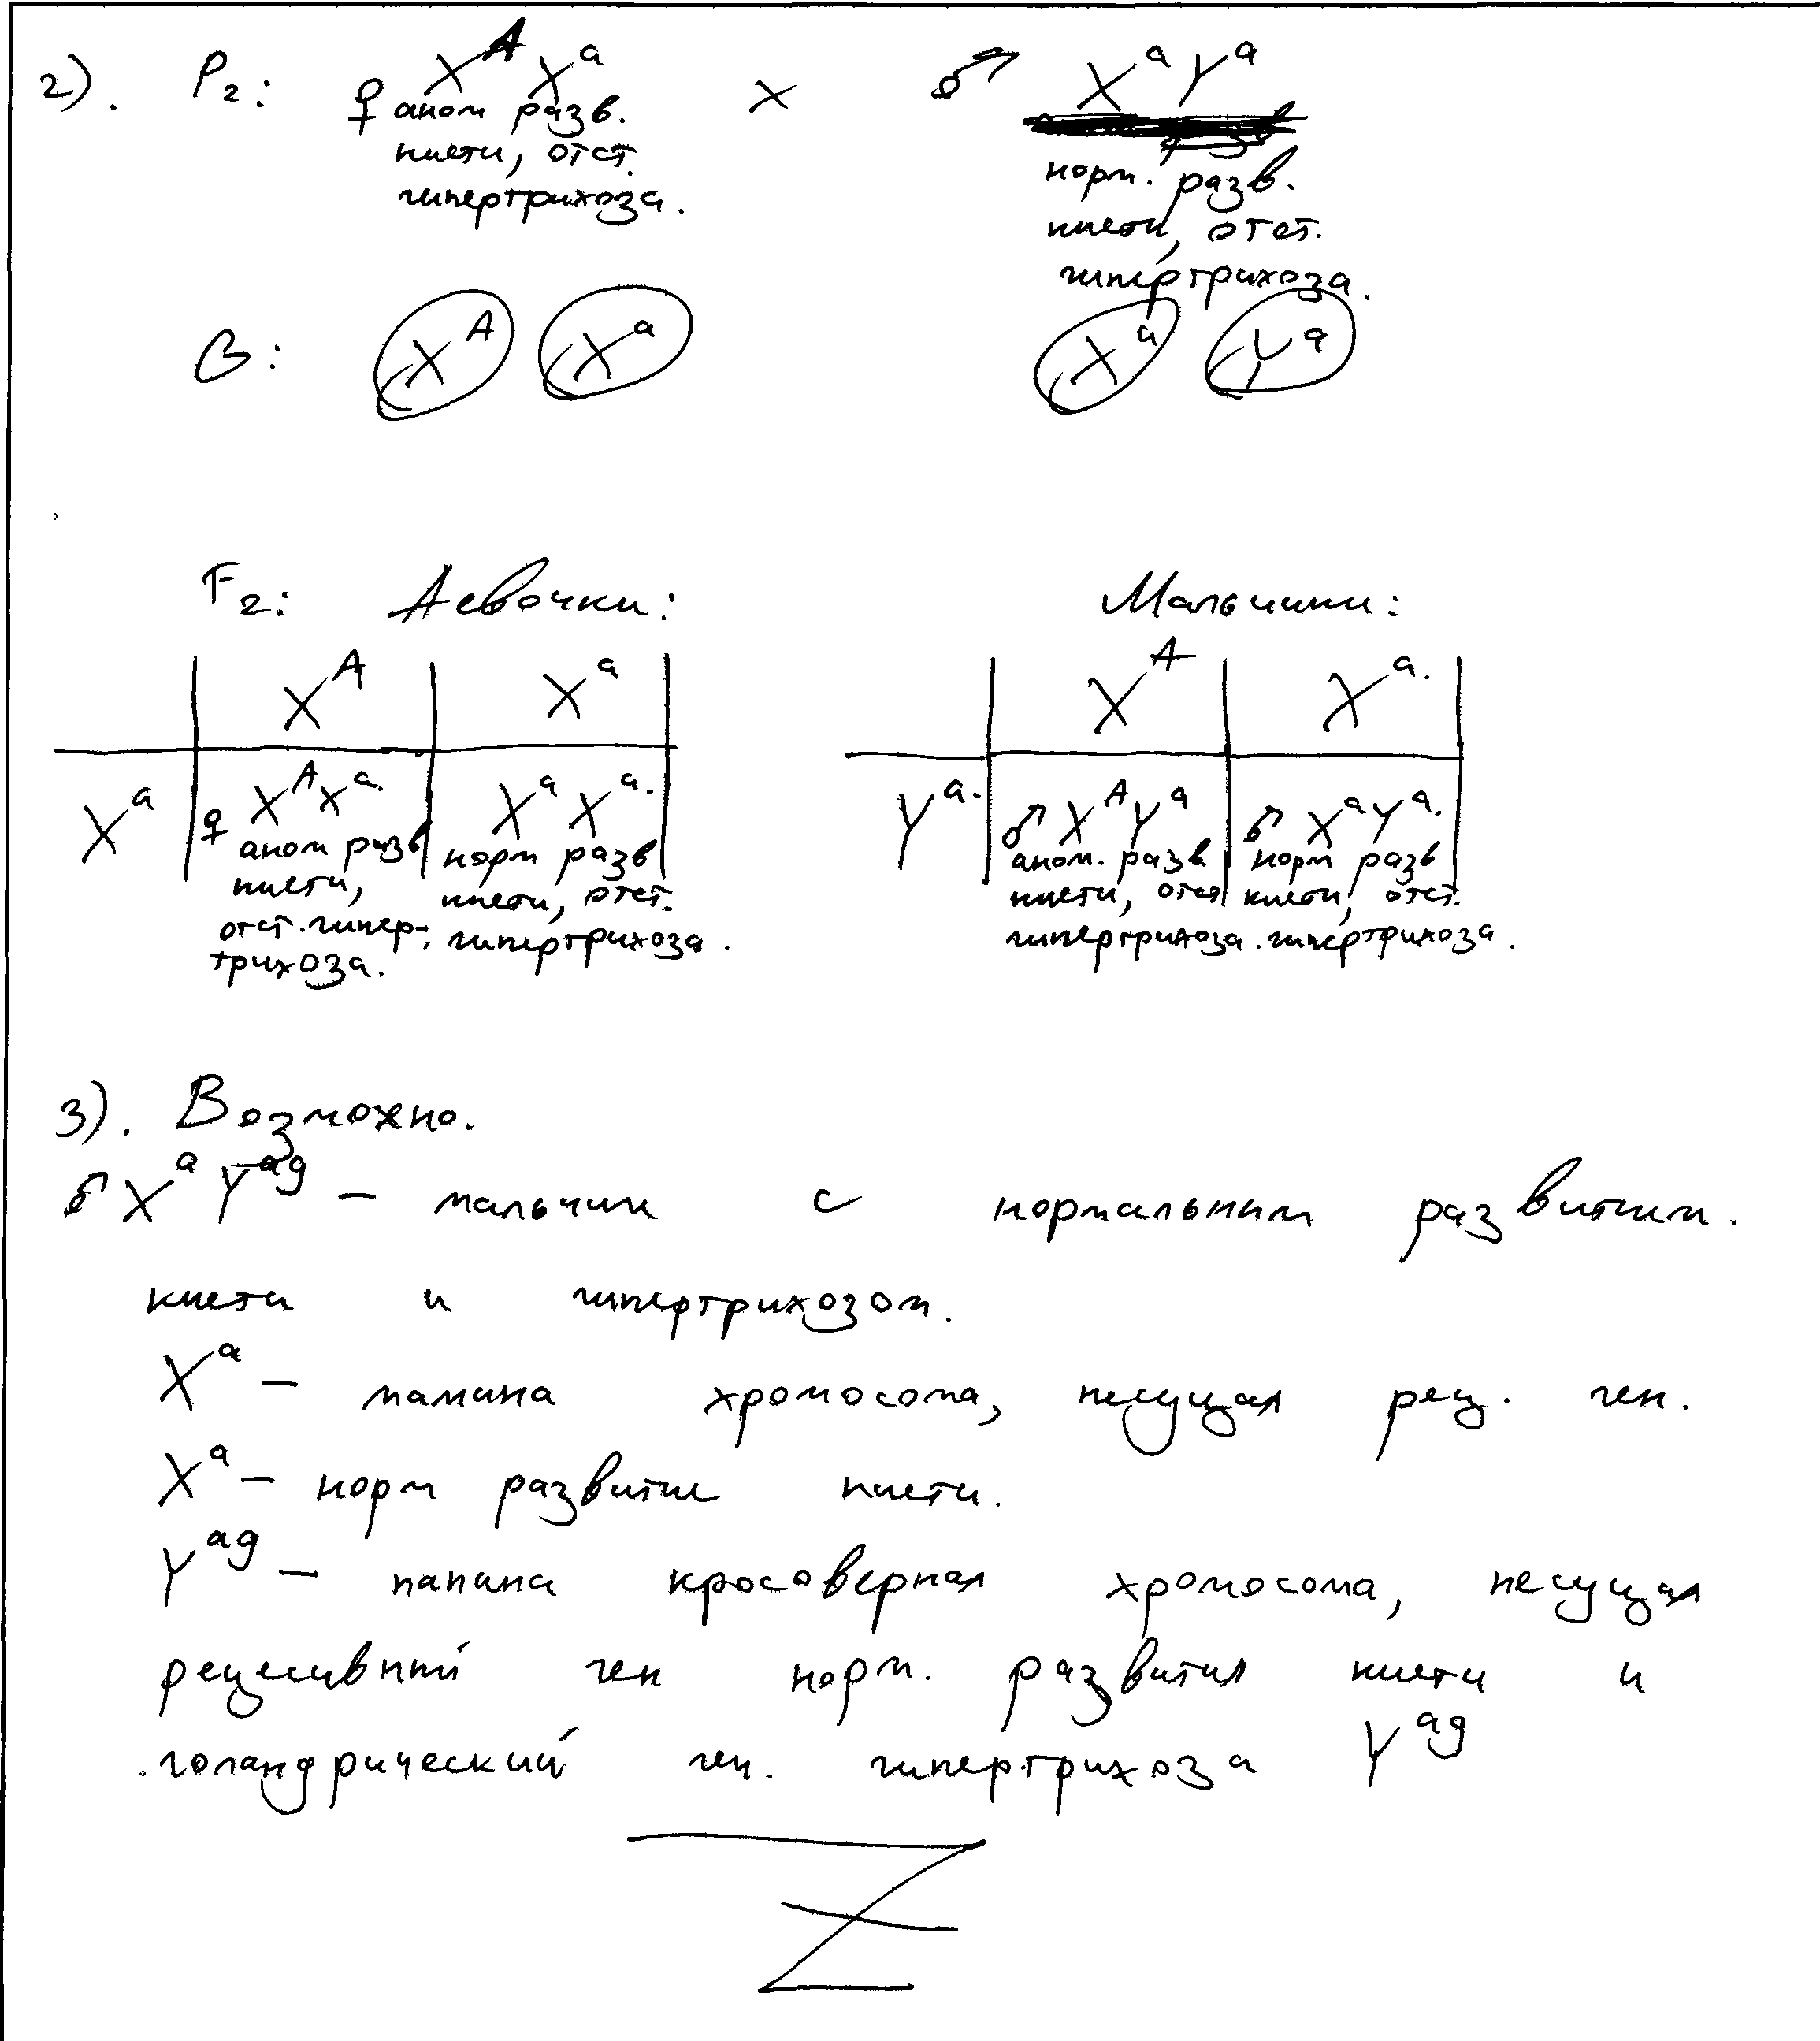 2). P₂: ♀ X^A X^a × ♂ X^a Y^a
аном разв. кисти, отст. гипертрихоза.
норм. разв. кисти, отст. гипертрихоза.
G: X^A X^a X^a Y^a
F₂: Девочки: Мальчики:
X^A X^a X^A X^a.
X^a ♀ X^A X^a. X^a X^a. Y^a. ♂ X^A Y^a ♂ X^a Y^a.
аном разв кисти, отст. гипер-трихоза.
норм разв кисти, отст. гипертрихоза.
аном. разв. кисти, отст гипертрихоза.
норм разв кисти, отст. гипертрихоза.
3). Возможно.
♂ X^a Y^ag – мальчик с нормальным развитием.
кисти и гипертрихозом.
X^a – мамина хромосома, несущая рец. ген.
X^a – норм развитие кисти.
Y^ag – папина кросоверная хромосома, несущая
рецесивный ген норм. развития кисти и
голандрический ген. гипертрихоза Y^ag